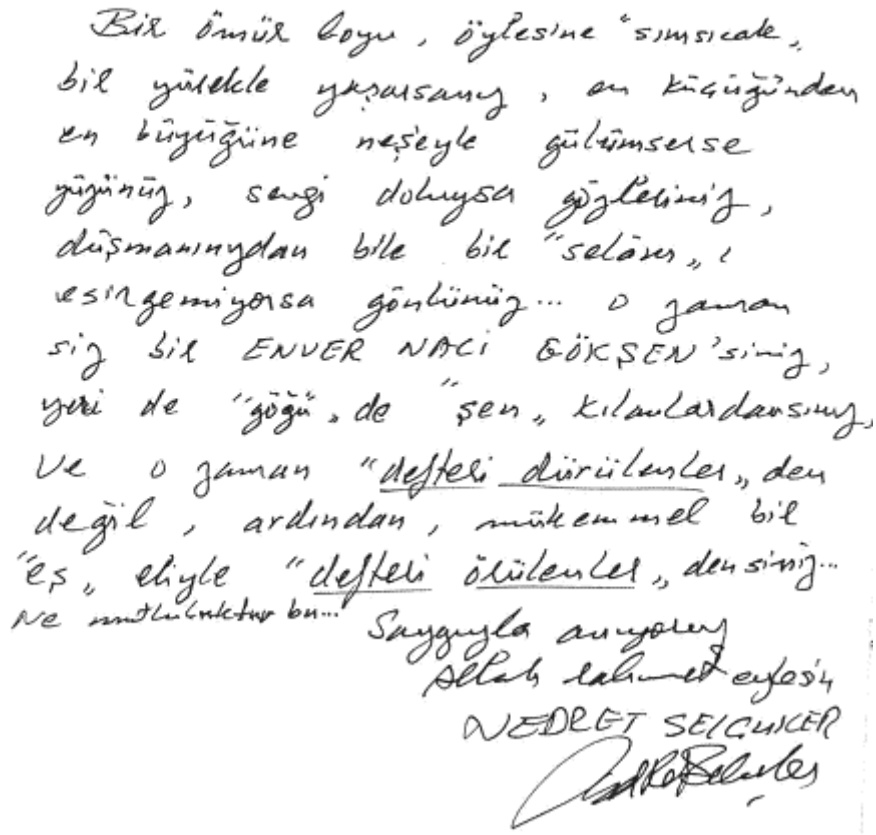 Bir ömür boyu, öylesine "sımsıcak„
bir yürekle yaşarsanız, en küçüğünden
en büyüğüne neşeyle gülümserse
yüzünüz, sevgi doluysa gözleriniz,
düşmanınızdan bile bir "selâm„ ı
esirgemiyorsa gönlünüz... o zaman
siz bir ENVER NACİ GÖKŞEN'siniz,
yeri de "göğü„ de "şen„ kılanlardansınız,
ve o zaman "defteri dürülenler„ den
değil, ardından, mükemmel bir
"eş„ eliyle "defteri örülenler„ densiniz...
Ne mutluluktur bu...
Saygıyla anıyoruz
Allah rahmet eylesin
NEDRET SELÇUKER